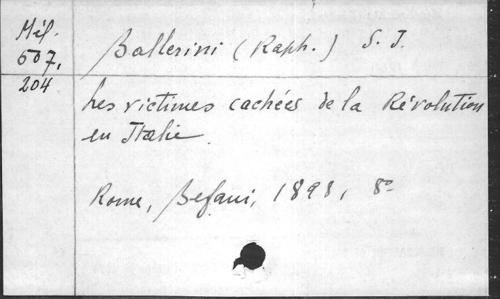 Mél.
507,
204
Ballerini (Raph.) S. J.
Les victimes cachées de la Révolution
en Italie.
Rome, Befani, 1898, 8°